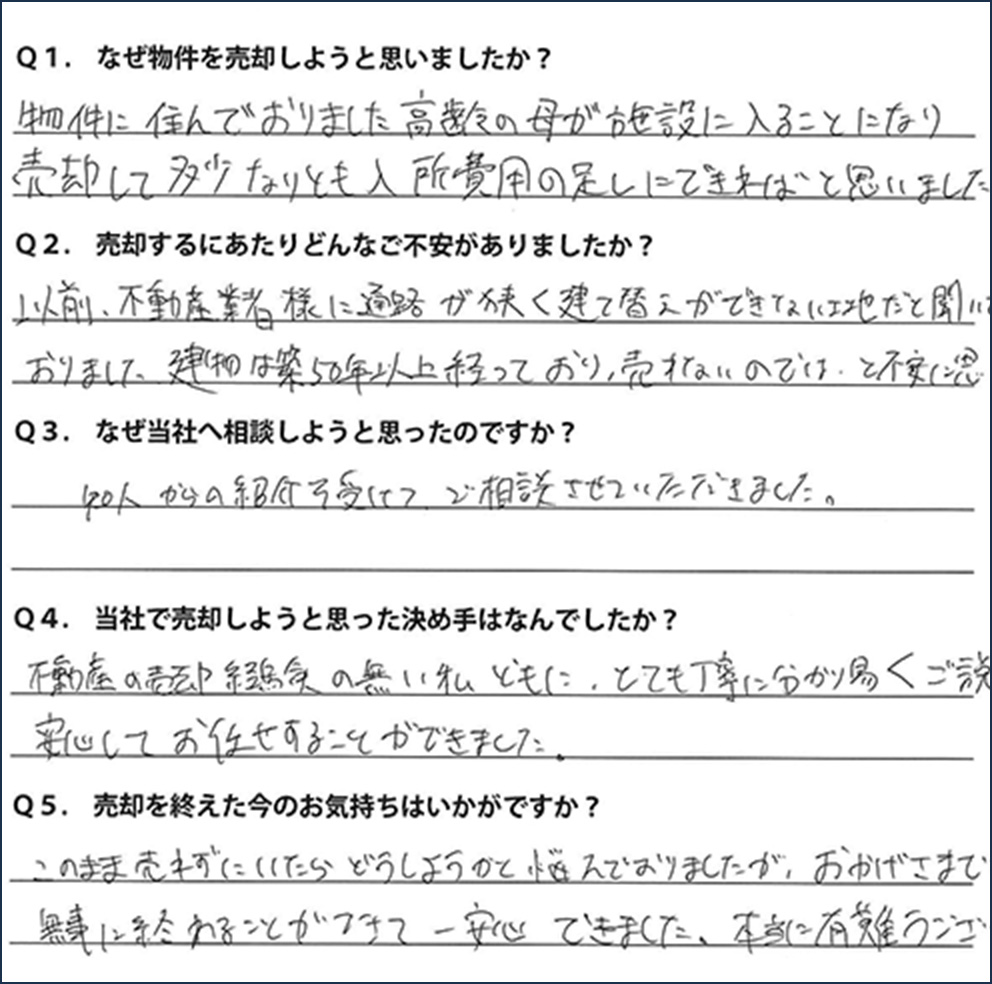 Q1. なぜ物件を売却しようと思いましたか？
物件に住んでおりました高齢の母が施設に入ることになり
売却して多少なりとも入所費用の足しにできればと思いました
Q2. 売却するにあたりどんなご不安がありましたか？
以前、不動産業者様に通路が狭く建て替えができない土地だと聞いて
おりました 建物は築50年以上経っており、売れないのでは、と不安に思
Q3. なぜ当社へ相談しようと思ったのですか？
知人からの紹介を受けて、ご相談させていただきました。
Q4. 当社で売却しようと思った決め手はなんでしたか？
不動産の売却経験の無い私どもに、とても丁寧に分かり易くご説
安心してお任せすることができました。
Q5. 売却を終えた今のお気持ちはいかがですか？
このまま売れずにいたらどうしようかと悩んでおりましたが、おかげさまで
無事に終わることができて一安心できました、本当に有難うござ